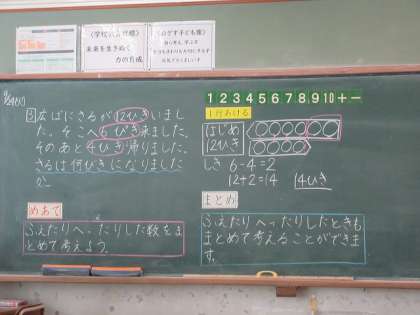 〈学校教育目標〉
未来を生きぬく
力の育成
〈めざす子ども像〉
9/24(火)
3 広ばにさるが12ひきいまし
た。そこへ6ぴき来ました。
そのあと4ひき帰りました。
さるは何びきになりました
か。
めあて
ふえたりへったりした数をま
とめて考えよう。
1 2 3 4 5 6 7 8 9 10 + −
1行あける
はじめ
12ひき
しき 6-4=2
12+2=14 14ひき
まとめ
ふえたりへったりしたときも
まとめて考えることができま
す。